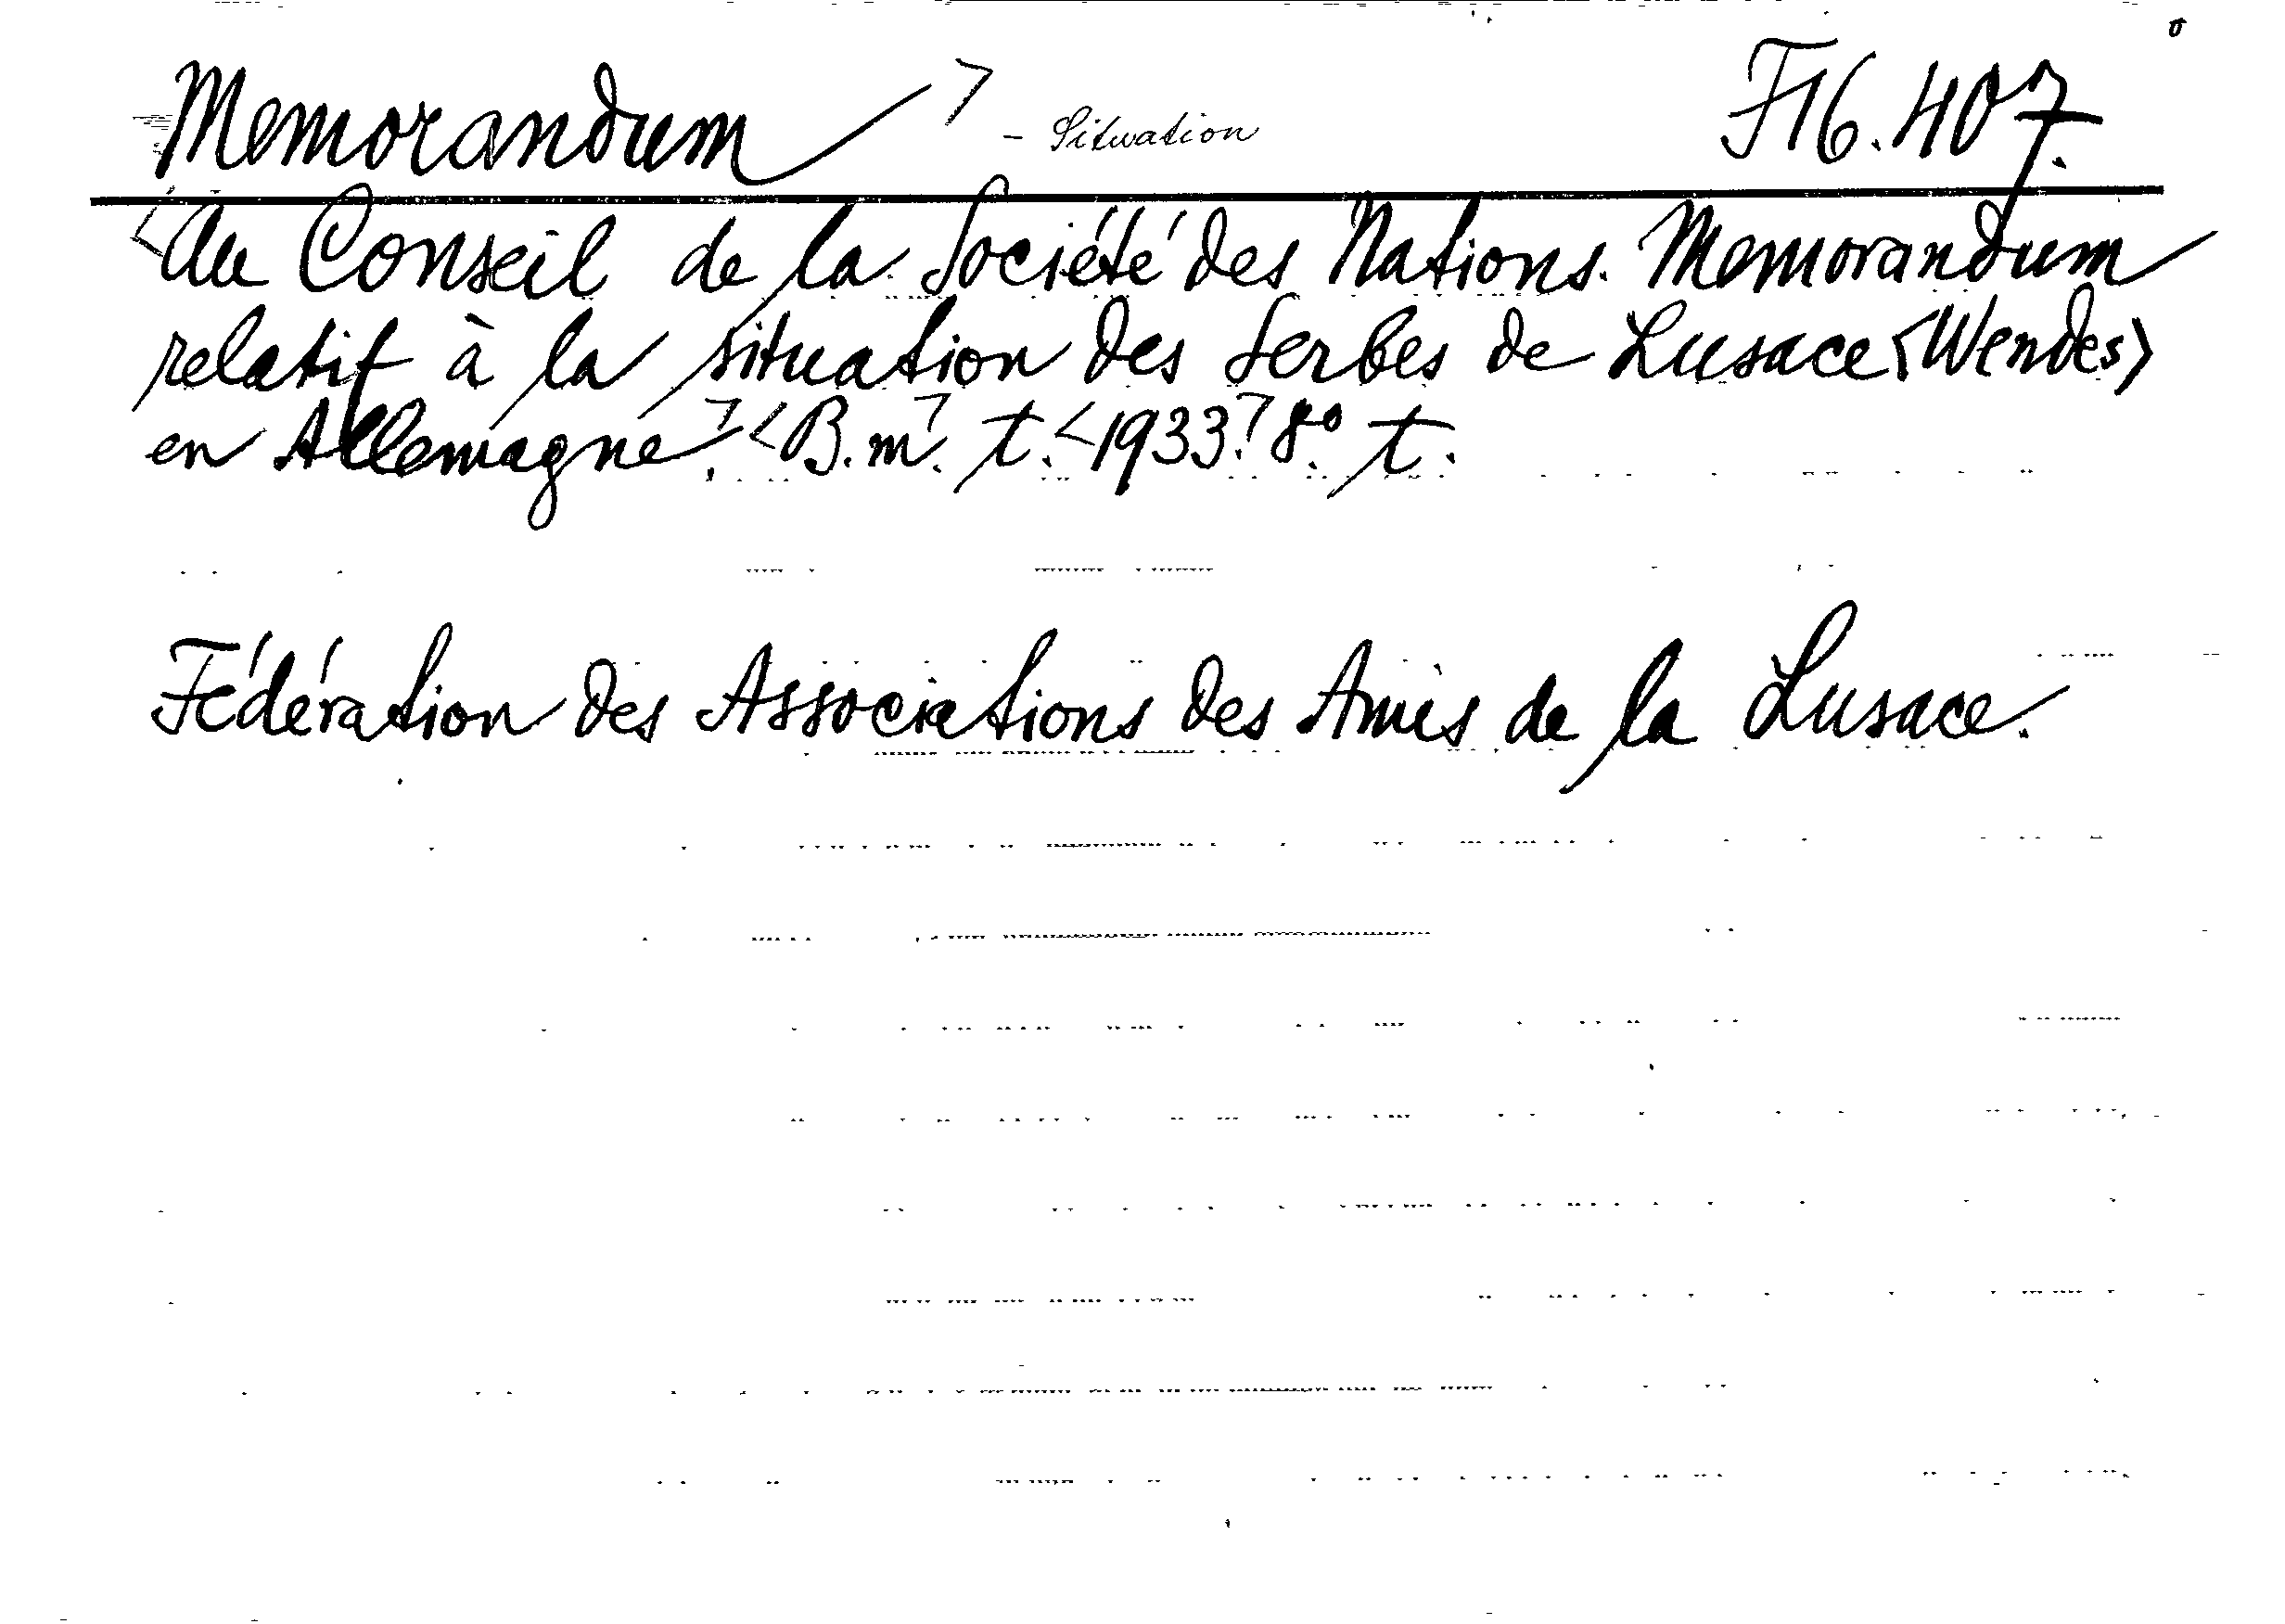 Memorandum > - Situation F16.407.
<Au Conseil de la Société des Nations. Memorandum
relatif à la situation des Serbes de Lusace <Wendes>
en Allemagne>. <B.m>. t. <1933>. 8º. t.
Fédération des Associations des Amis de la Lusace.